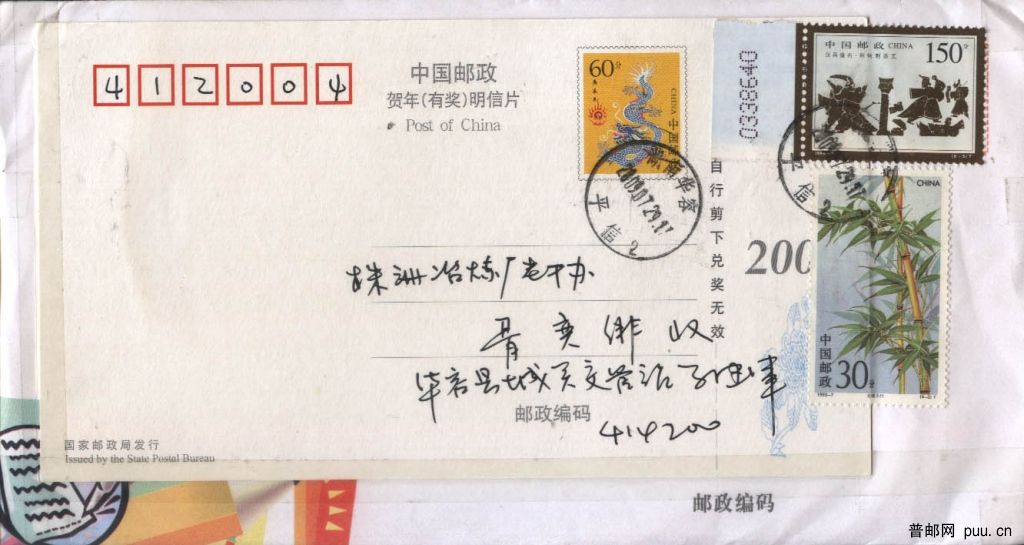 412004
中国邮政
贺年(有奖)明信片
Post of China
60分
CHINA
中国邮政
0338640
中国邮政 CHINA
150分
CHINA
中国邮政
30分
湖南华容
2009.07.29.17
平信2
平信2
自行剪下兑奖无效
200
株洲冶炼厂老干办
收
华容县城关交管站
邮政编码
414200
国家邮政局发行
Issued by the State Postal Bureau
邮政编码
普邮网 puu.cn